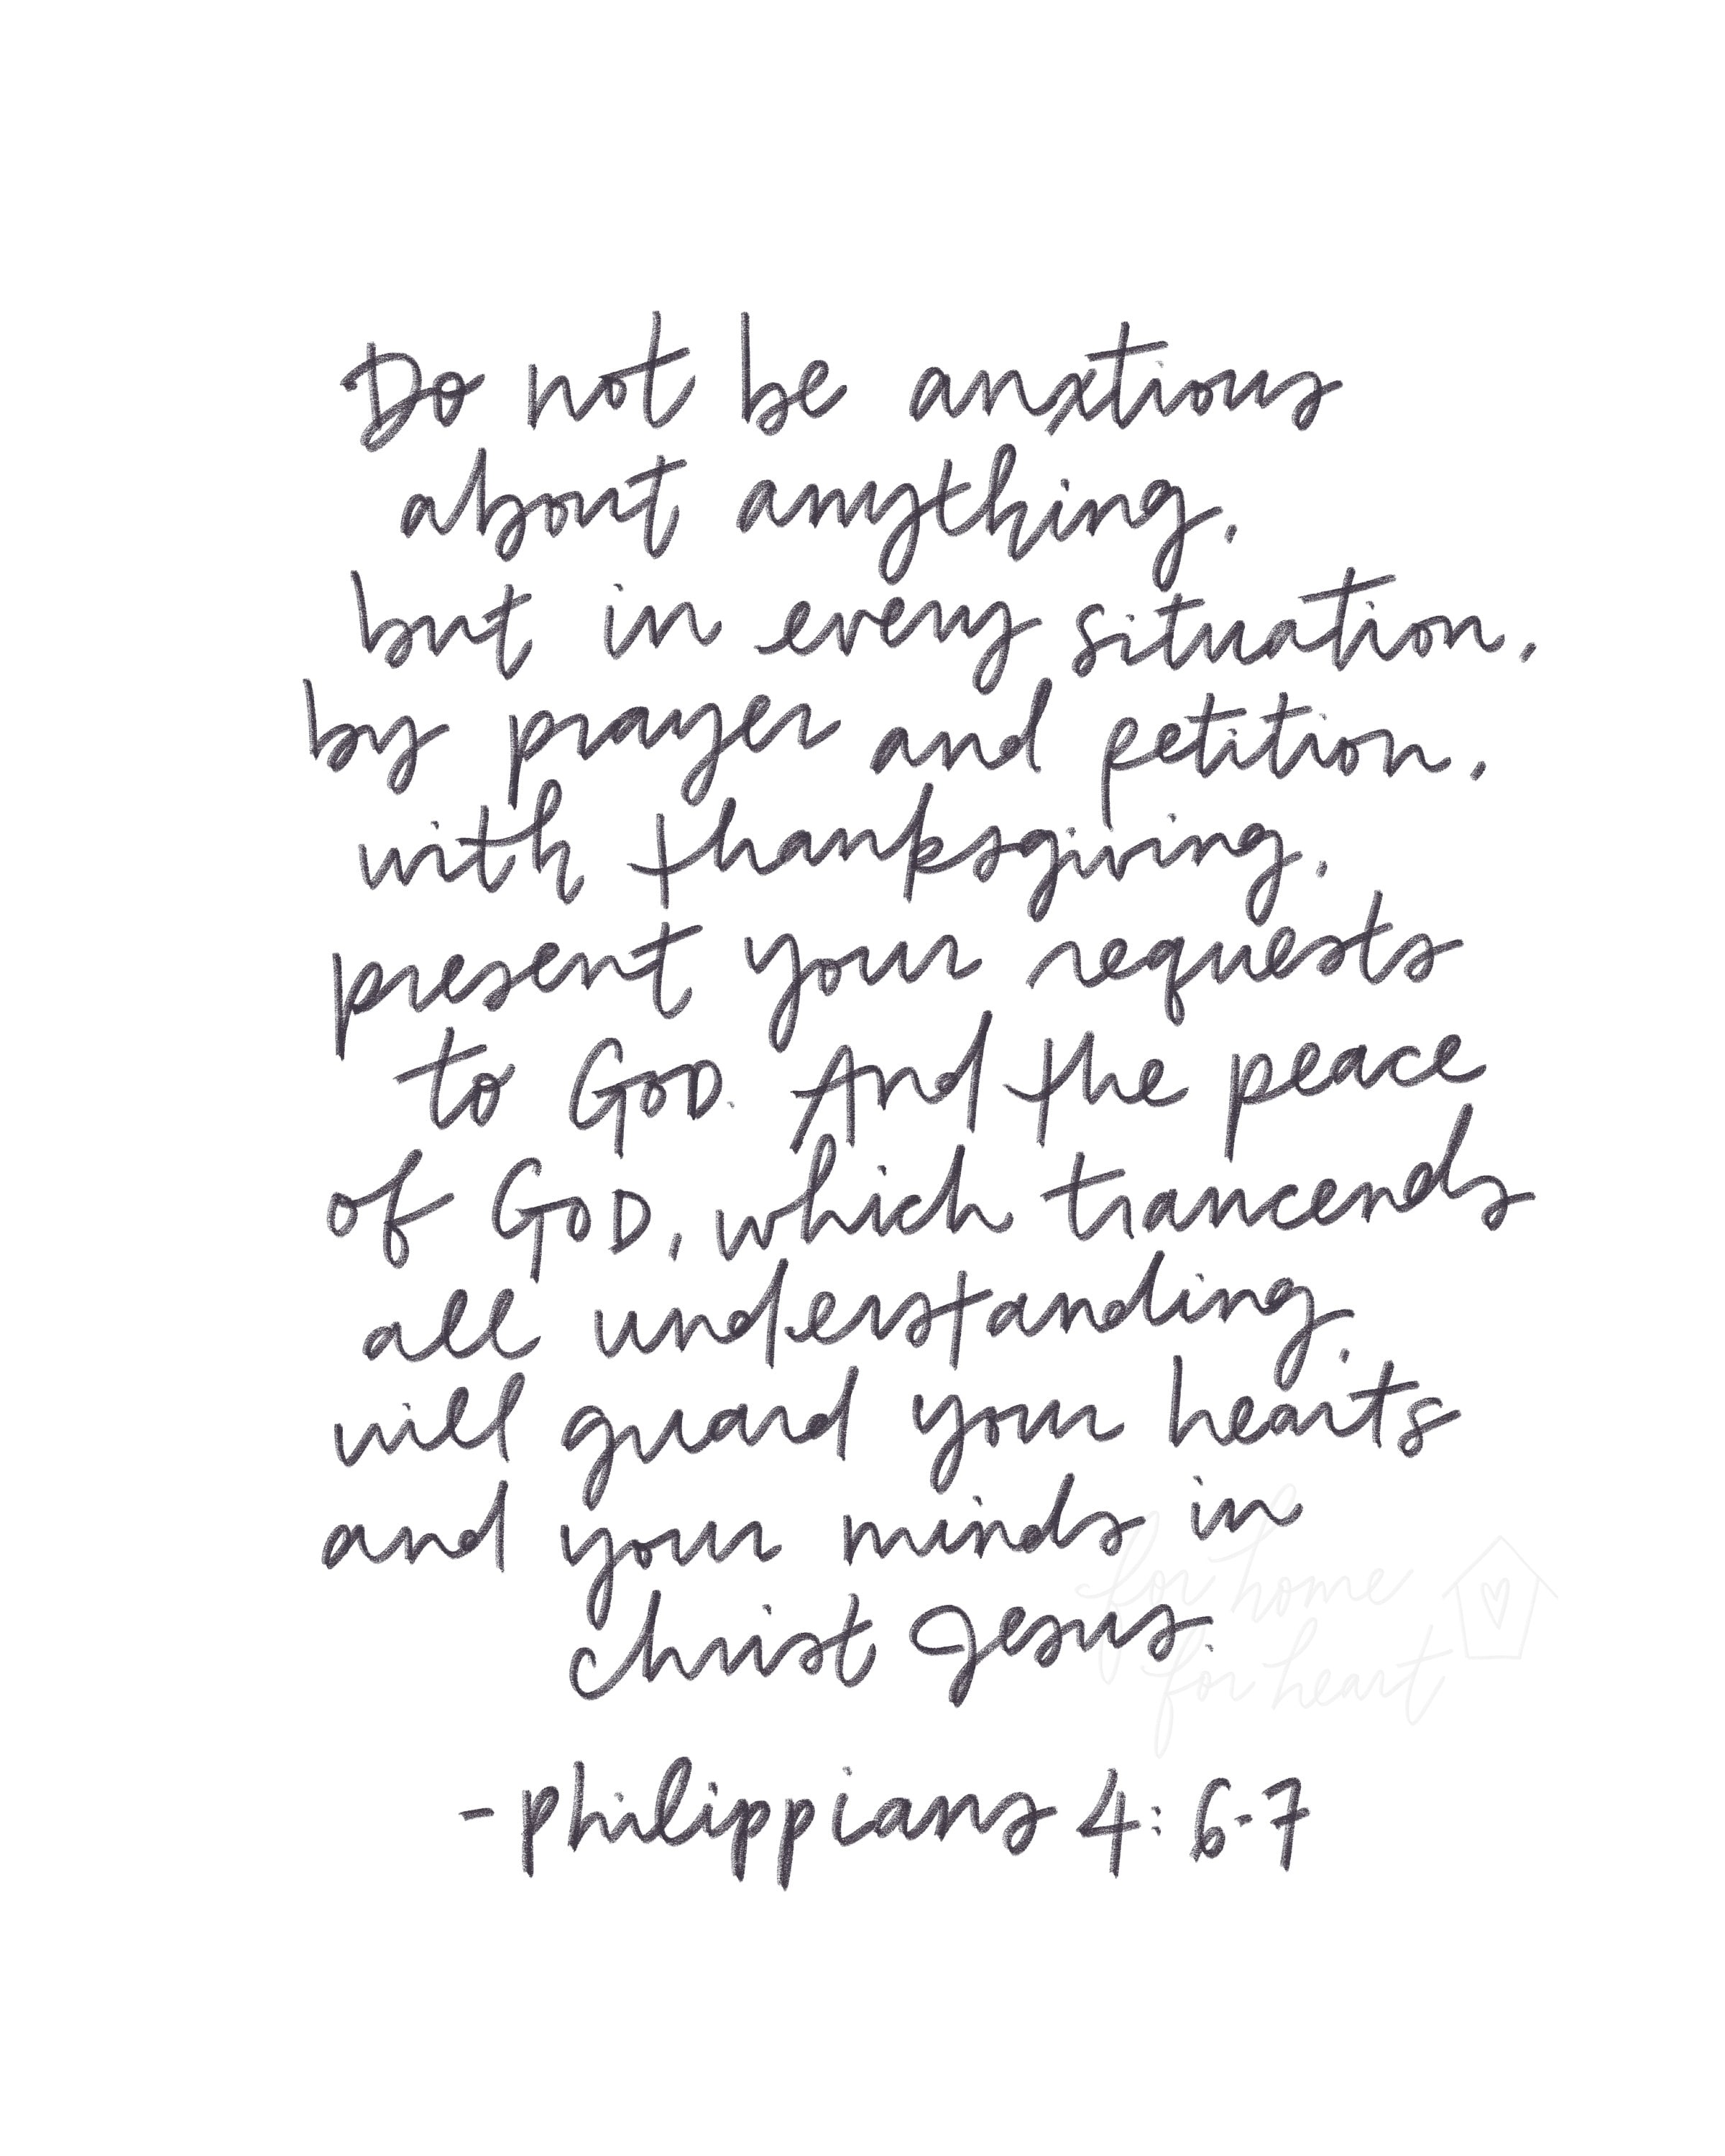 Do not be anxtious
about anything,
but in every situation,
by prayer and petition,
with thanksgiving,
present your requests
to GOD. And the peace
of GOD, which trancends
all understanding,
will guard your hearts
and your minds in
christ Jesus.
for home
for heart
-philippians 4:6-7